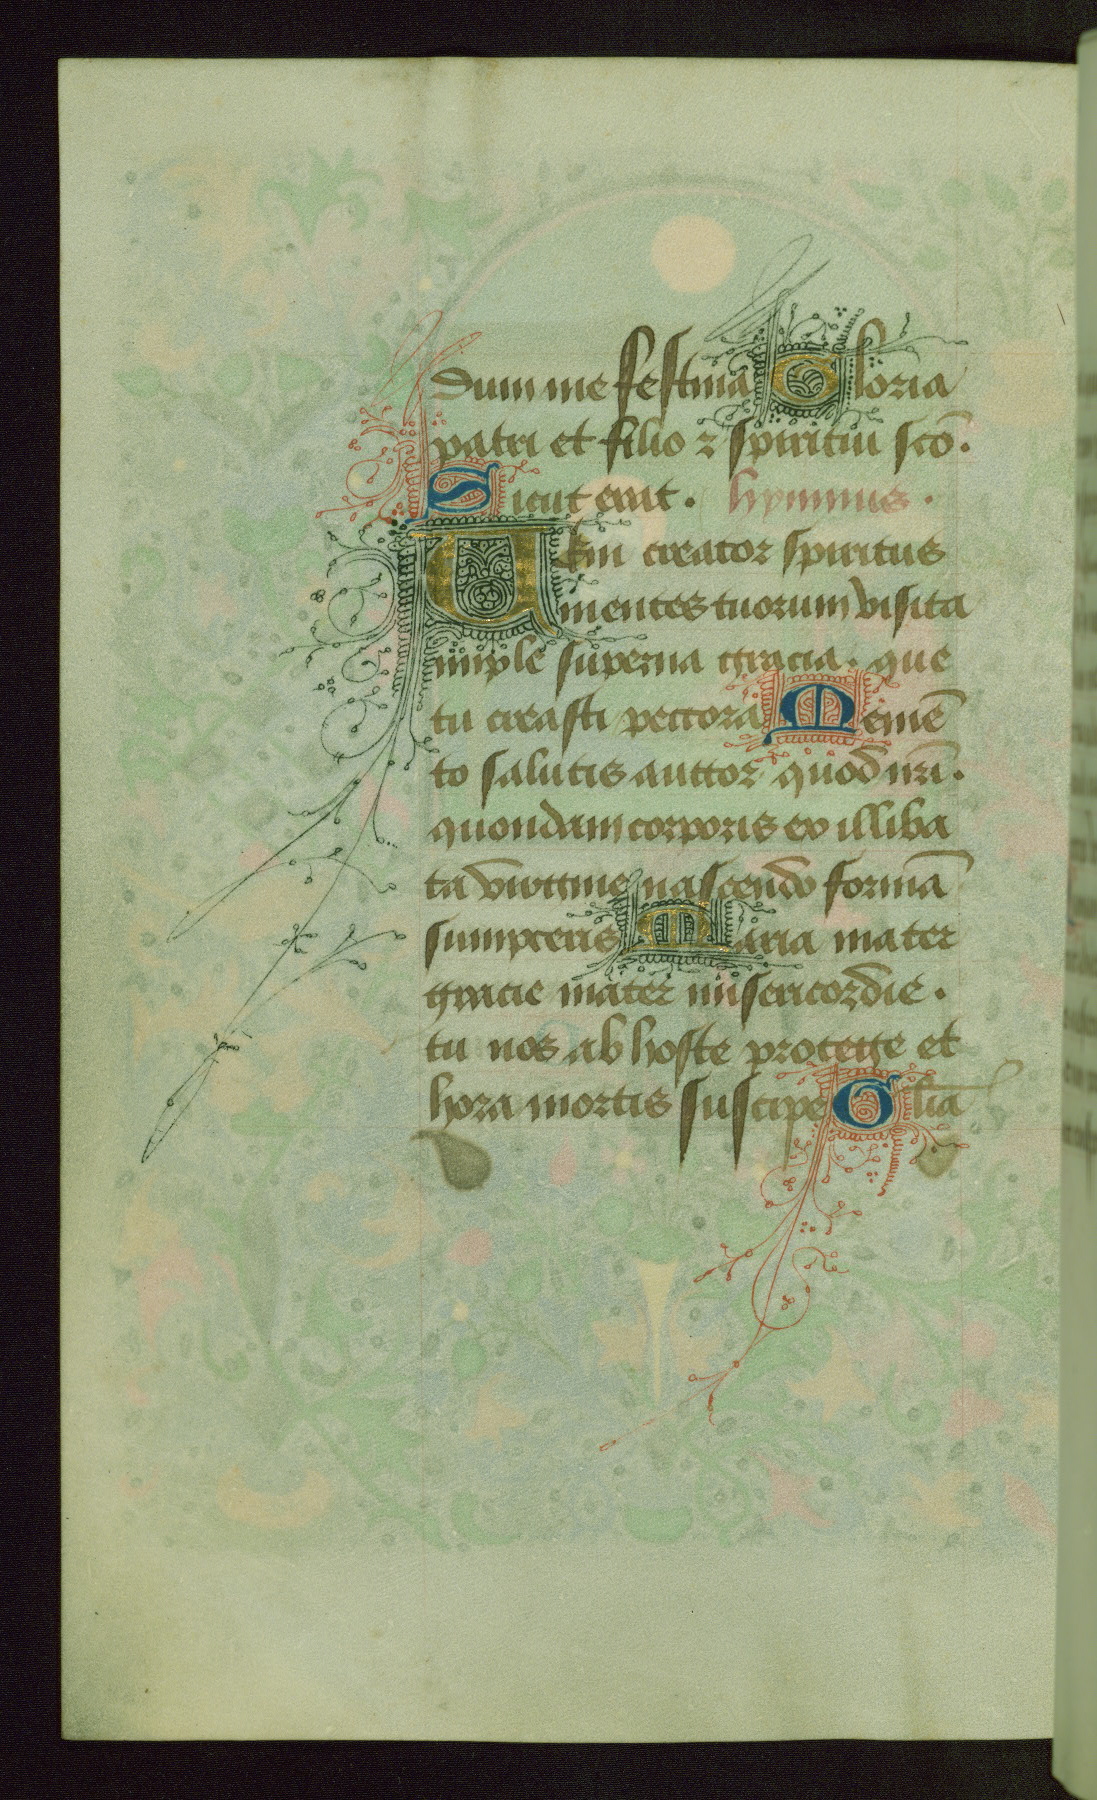 dum me festina Gloria
patri et filio ⁊ spiritui scō.
Sicut erat. hymnus.
Ueni creator spiritus
mentes tuorum visita
imple superna gracia. que
tu creasti pectora Memē
to salutis auctor quod nr̄i.
quondam corporis ex illiba
ta virgine nascendo formā
sumpseris Maria mater
gracie mater misericordie.
tu nos ab hoste protege et
hora mortis suscipe Glīa